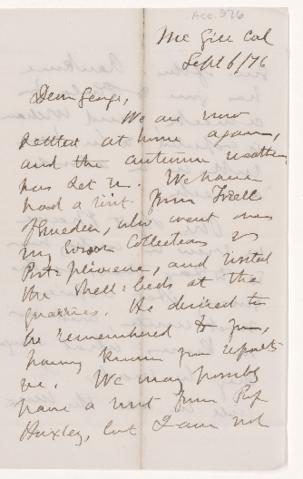 Acc. 376
McGill Col
Sept 6/76
Dear George,
We are now
settled at home again,
and the autumn weather
has set in. We have
had a visit from Torell
of Sweden, who went over
my collections of
Post-pliocene, and visited
the shell-beds at the
quarries. He desired to
be remembered to you,
having known your reports
we. We may possibly
have a visit from Prof
Huxley, but I am not